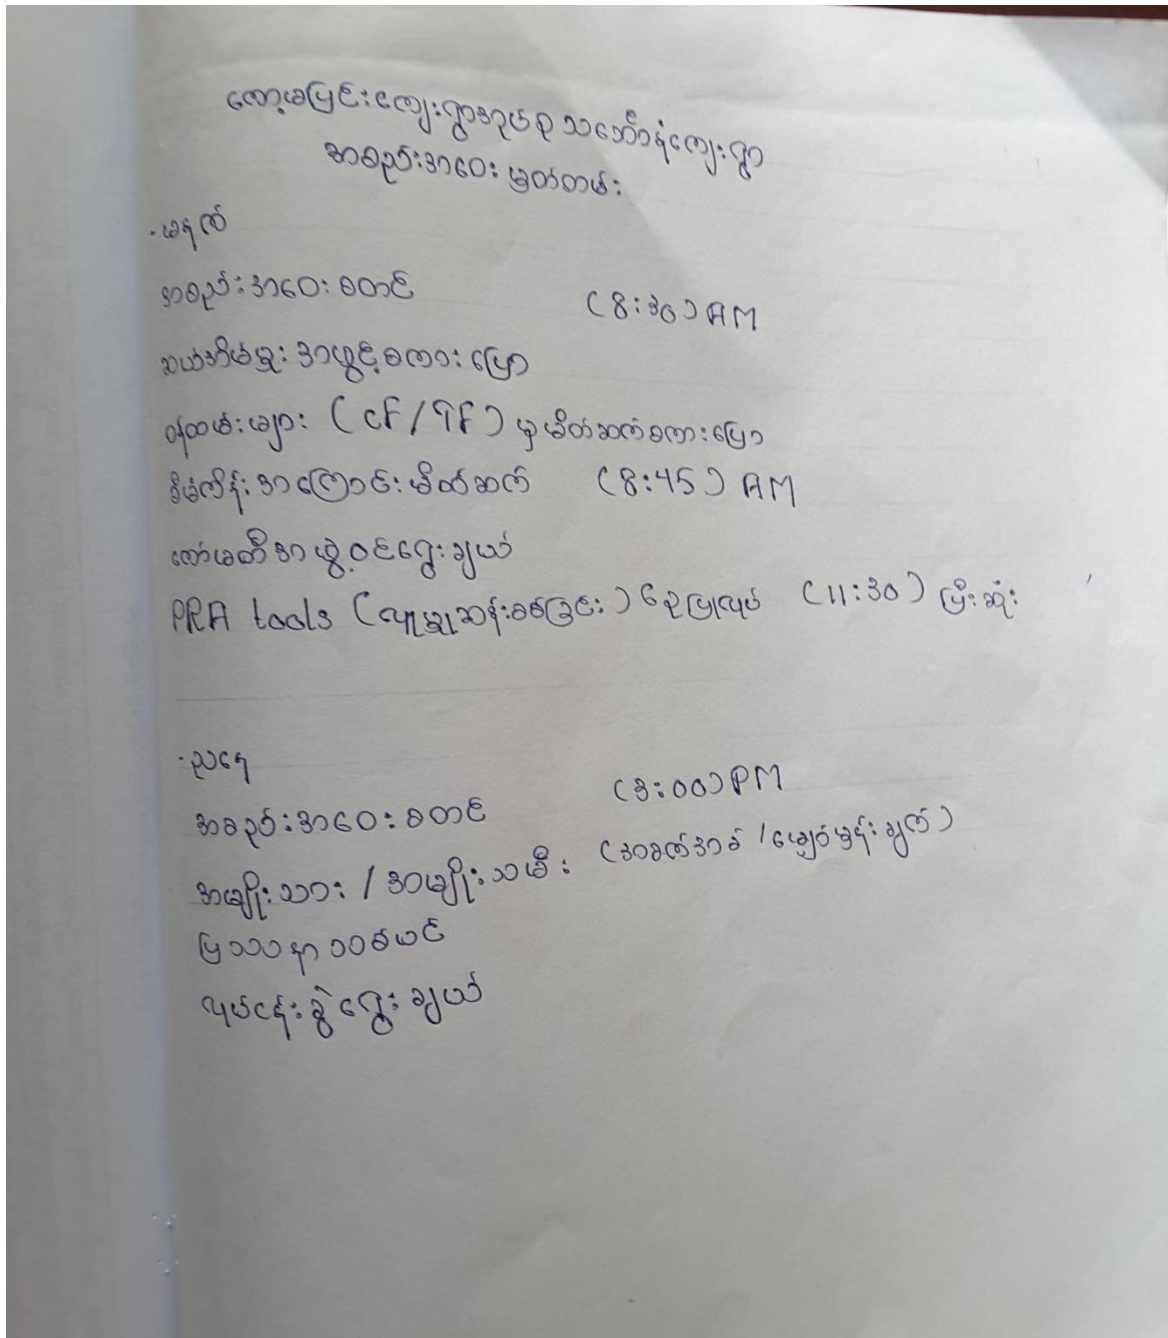 ကော့မပြင်းကျေးရွာအုပ်စု သင်္ဘောနုံကျေးရွာ
အစည်းအဝေး မှတ်တမ်း
· မနက်
အစည်းအဝေး စတင် (8:30) AM
ဆယ်အိမ်မှူး အဖွင့်စကား ပြော
ဝန်ထမ်းများ (CF/TF) မှ မိတ်ဆက်စကားပြော
စီမံကိန်း အကြောင်း မိတ်ဆက် (8:45) AM
ကော်မတီ အဖွဲ့ဝင်ရွေးချယ်
PRA tools (လေ့လာဆန်းစစ်ခြင်း) ပြုလုပ် (11:30) ပြီးဆုံး
· ညနေ
အစည်းအဝေး စတင် (3:00) PM
အမျိုးသား / အမျိုးသမီး (အခက်အခဲ / မျှော်မှန်းချက်)
ပြဿနာ သစ်ပင်
လုပ်ငန်းခွဲ ရွေးချယ်